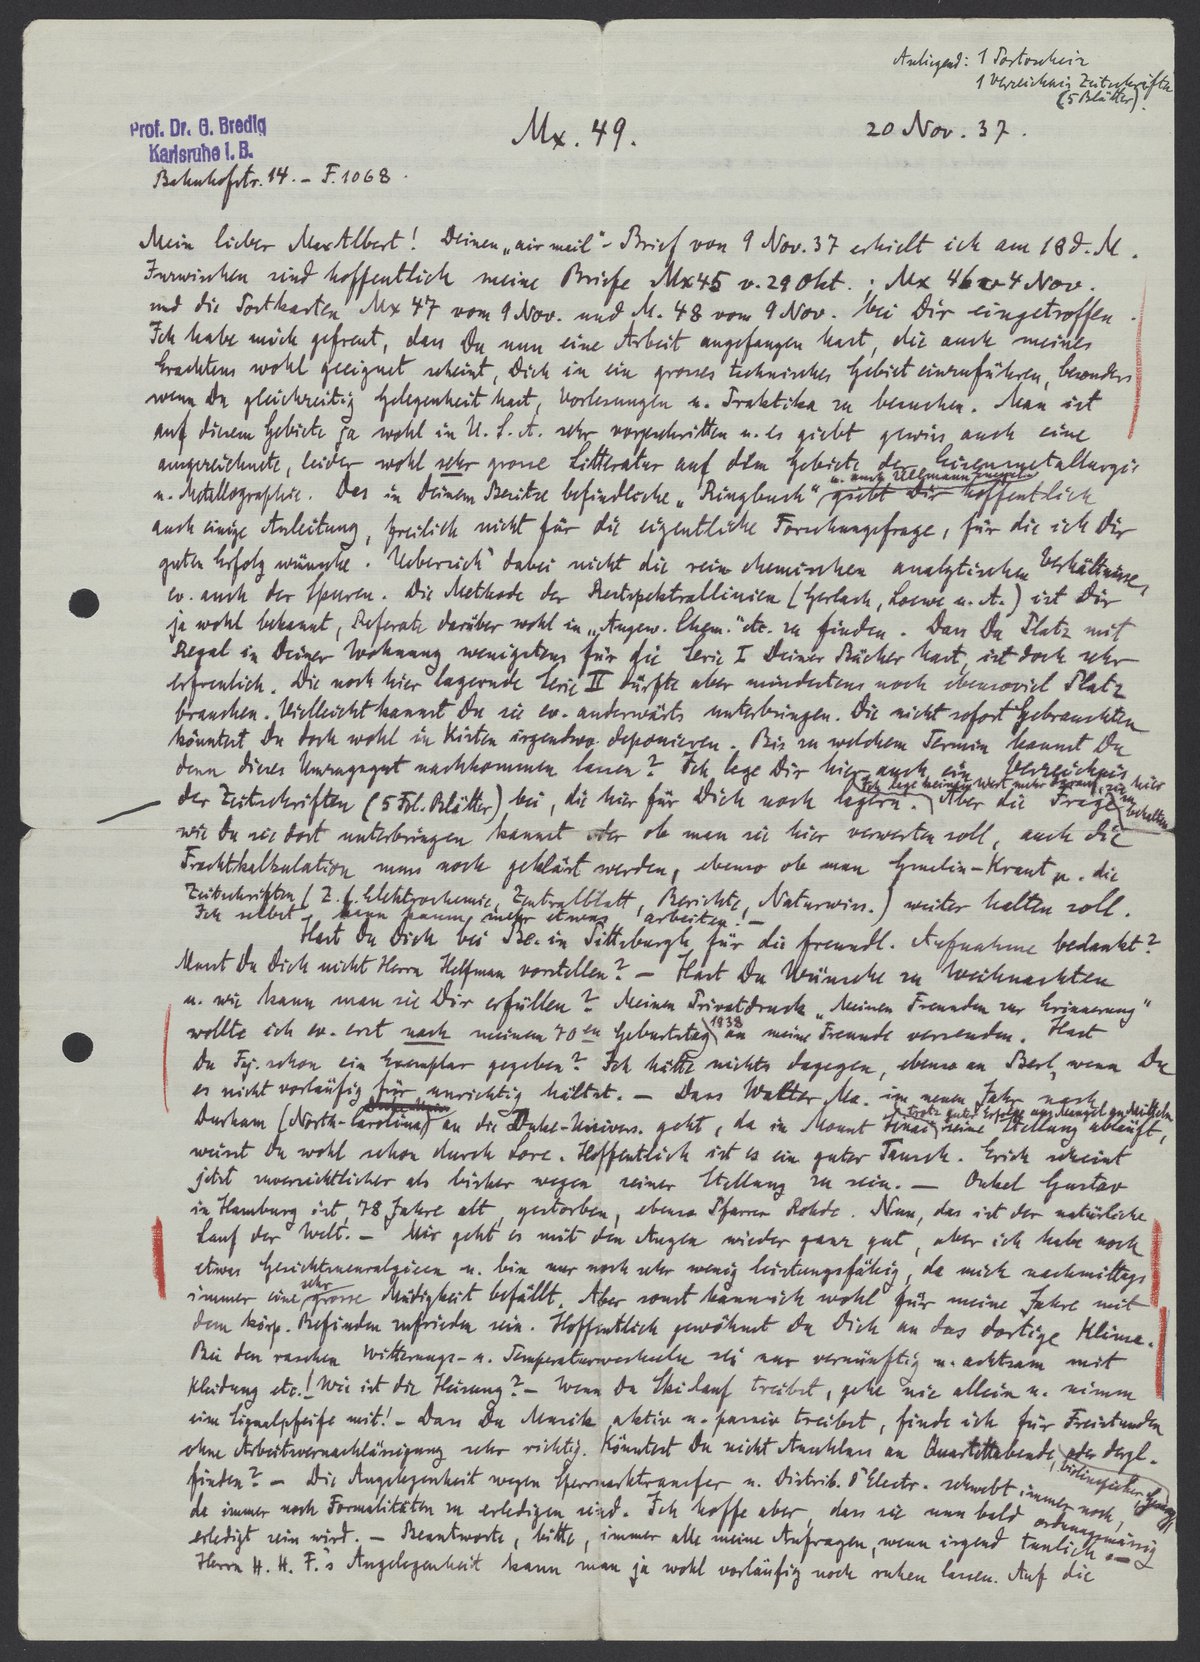 Anliegend: 1 Portoschein
1 Verzeichnis Zeitschriften
(5 Blätter).
Prof. Dr. G. Bredig
Karlsruhe i. B.
Bahnhofstr. 14. – F. 1068.
Mx. 49.
20 Nov. 37.
Mein lieber Max Albert! Deinen „air mail"-Brief von 9 Nov. 37 erhielt ich am 18 d. M.
Inzwischen sind hoffentlich meine Briefe Mx 45 v. 29 Okt.; Mx 46 v 4 Nov.
und die Postkarten Mx 47 vom 9 Nov. und M. 48 vom 9 Nov. bei Dir eingetroffen.
Ich habe mich gefreut, dass Du nun eine Arbeit angefangen hast, die auch meines
Erachtens wohl geeignet scheint, Dich in ein grosses technisches Gebiet einzuführen, besonders
wenn Du gleichzeitig Gelegenheit hast, Vorlesungen u. Praktika zu besuchen. Man ist
auf diesem Gebiete ja wohl in U. S. A. sehr vorgeschritten u. es giebt gewiss auch eine
ausgezeichnete, leider wohl sehr grosse Litteratur auf dem Gebiete der Eisenmetallurgie
u. Metallographie. Das in Deinem Besitze befindliche „Ringbuch" u. auch Ullmann giebt Dir hoffentlich
auch einige Anleitung, freilich nicht für die eigentliche Forschungsfrage, für die ich Dir
guten Erfolg wünsche. Uebersieh dabei nicht die rein chemischen analytischen Verhältnisse,
ev. auch der Spuren. Die Methode der Restspektrallinien (Gerlach, Loewe u. A.) ist Dir
ja wohl bekannt, Referate darüber wohl in „Angew. Chem." etc. zu finden. Dass Du Platz mit
Regal in Deiner Wohnung wenigstens für die Serie I Deiner Bücher hast, ist doch sehr
erfreulich. Die noch hier lagernde Serie II dürfte aber mindestens noch ebensoviel Platz
brauchen. Vielleicht kannst Du sie ev. anderwärts unterbringen. Die nicht sofort Gebrauchten
könntest Du doch wohl in Kisten irgendwo deponieren. Bis zu welchem Termin kannst Du
denn dieses Umzugsgut nachkommen lassen? Ich lege Dir hier auch ein Verzeichnis
der Zeitschriften (5 Fol. Blätter) bei, die hier für Dich noch lagern. Ich lege keinen Wert mehr darauf, sie hier zu behalten. Aber die Frage,
wie Du sie dort unterbringen kannst oder ob man sie hier verwerten soll, auch die
Frachtkalkulation muss noch geklärt werden, ebenso ob man Gmelin-Kraut u. die
Zeitschriften (Z. f. Elektrochemie, Zentralblatt, Berichte, Naturwiss.) weiter halten soll.
Ich selbst kann kaum mehr etwas arbeiten! –
Hast Du Dich bei Be. in Pittsburgh für die freundl. Aufnahme bedankt?
Musst Du Dich nicht Herrn Helfman vorstellen? – Hast Du Wünsche zu Weihnachten
u. wie kann man sie Dir erfüllen? Meinen Privatdruck „Meinen Freunden zur Erinnerung"
wollte ich ev. erst nach meinem 70en Geburtstag 1938 an meine Freunde versenden. Hast
Du Faj. schon ein Exemplar gegeben? Ich hätte nichts dagegen, ebenso an Berl, wenn Du
es nicht vorläufig für unrichtig hältst. – Dass Walter Ma. im neuen Jahr nach
Durham (North-Carolina) an die Duke-Univers. geht, da in Mount Sinai trotz guter Erfolge aus Mangel an Mitteln seine Stellung abläuft,
weisst Du wohl schon durch Lore. Hoffentlich ist es ein guter Tausch. Erich scheint
jetzt zuversichtlicher als bisher wegen seiner Stellung zu sein. – Onkel Gustav
in Hamburg ist, 78 Jahre alt, gestorben, ebenso Pfarrer Rohde. Nun, das ist der natürliche
Lauf der Welt. – Mir geht es mit den Augen wieder ganz gut, aber ich habe noch
etwas Gesichtsneuralgieen u. bin nur noch sehr wenig leistungsfähig, da mich nachmittags
immer eine sehr grosse Müdigkeit befällt. Aber sonst kann ich wohl für meine Jahre mit
dem körp. Befinden zufrieden sein. Hoffentlich gewöhnst Du Dich an das dortige Klima.
Bei den raschen Witterungs- u. Temperaturwechseln sei nur vernünftig u. achtsam mit
Kleidung etc.! Wie ist die Heizung? – Wenn Du Skilauf treibst, gehe nie allein u. nimm
eine Signalpfeife mit! – Dass Du Musik aktiv u. passiv treibst, finde ich für Freistunden
ohne Arbeitsvernachlässigung sehr richtig. Könntest Du nicht Anschluss an Quartettabende oder dergl.
finden? – Die Angelegenheit wegen Sperrmarktransfer u. Distrib. d'Electr. schwebt immer noch,
da immer noch Formalitäten zu erledigen sind. Ich hoffe aber, dass sie nun bald ordnungsmässig
erledigt sein wird. – Beantworte, bitte, immer alle meine Anfragen, wenn irgend tunlich. –
Herrn H. H. F.'s Angelegenheit kann man ja wohl vorläufig noch ruhen lassen. Auf die